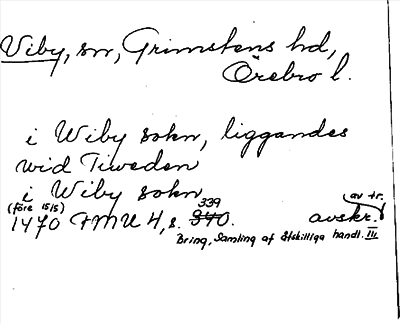 Viby, sn, Grimstens hd,
Örebro l.
i Wiby sokn, liggandes
wid Tiweden
i Wiby sokn
(före 1515) 339 av tr.
1470 FMU 4, s. 340. avskr.
Bring, Samling af åtskilliga handl. III